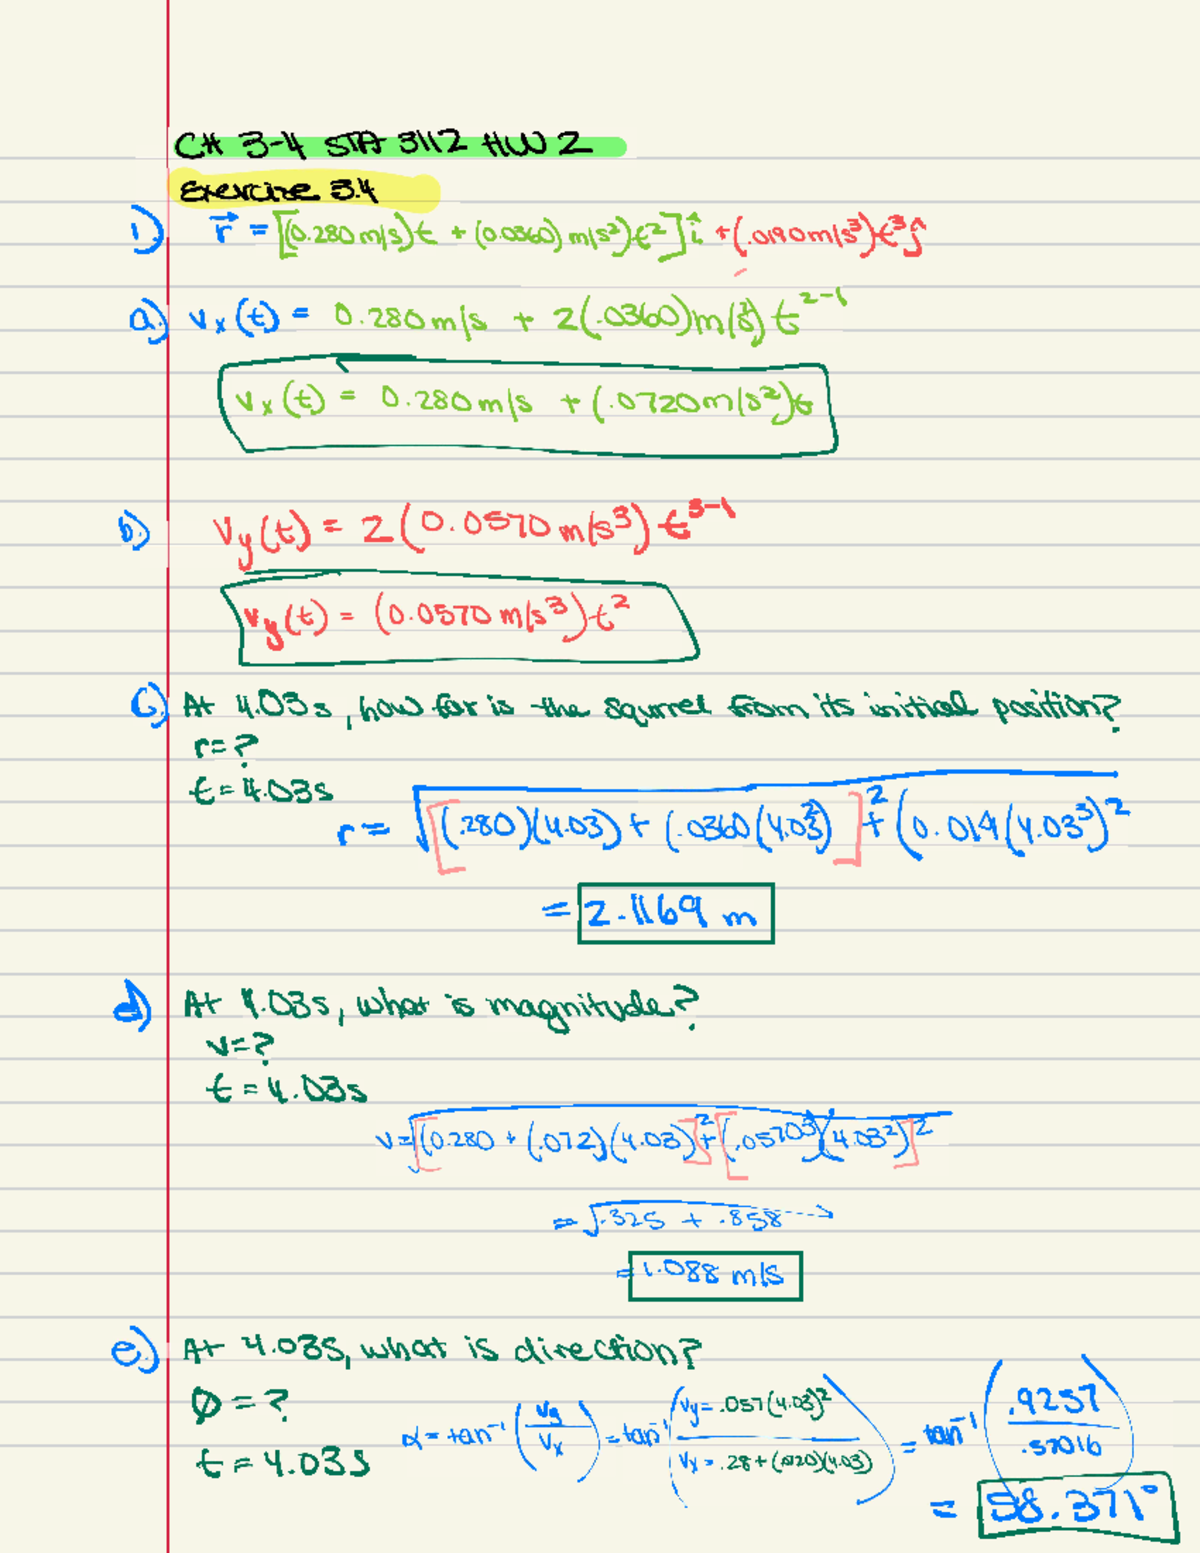 CH 3-4 STA 3112 HW 2
Exercise 3.4
1) r⃗ = [(0.280 m/s)t + (0.0360) m/s²)t²] î + (.0190 m/s³)t³ ĵ
a) vx(t) = 0.280 m/s + 2(.0360)m/s²) t²⁻¹
vx(t) = 0.280 m/s + (.0720 m/s²)t
b) vy(t) = 2(0.0570 m/s³) t³⁻¹
vy(t) = (0.0570 m/s³)t²
c) At 4.03s, how far is the squrrel from its initial position?
r = ?
t = 4.03s
r = √[(.280)(4.03) + (.0360(4.03²)]² + (0.019(4.03³)²
= 2.1169 m
d) At 4.03s, what is magnitude?
v = ?
t = 4.03s
v = √[(0.280 + (.072)(4.03)]² + [(.0570³)(4.03²)]²
= √.325 + .858
= 1.088 m/s
e) At 4.03s, what is direction?
Ø = ?
t = 4.03s
α = tan⁻¹(vy/vx) = tan⁻¹(vy = .057(4.03)² / vx = .28 + (.0720)(4.03)) = tan⁻¹(.9257/.57016)
= 58.371°